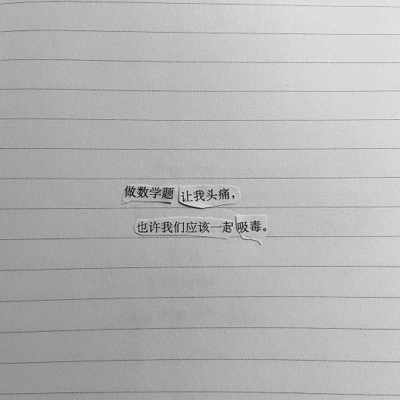 做数学题让我头痛，
也许我们应该一起吸毒。